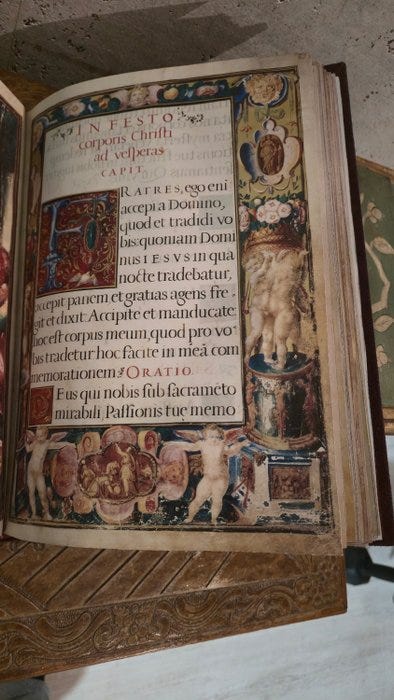 IN FESTO
corporis Christi
ad vesperas
CAPIT.
FRATRES, ego eni
accepi a Domino,
quod et tradidi vo
bis: quoniam Domi
nus IESVS in qua
nocte tradebatur,
accepit panem et gratias agens fre-
git et dixit: Accipite et manducate:
hoc est corpus meum, quod pro vo-
bis tradetur: hoc facite in meā com
memorationem. ORATIO.
DEus qui nobis sub sacrameto
mirabili, Passionis tuę memo